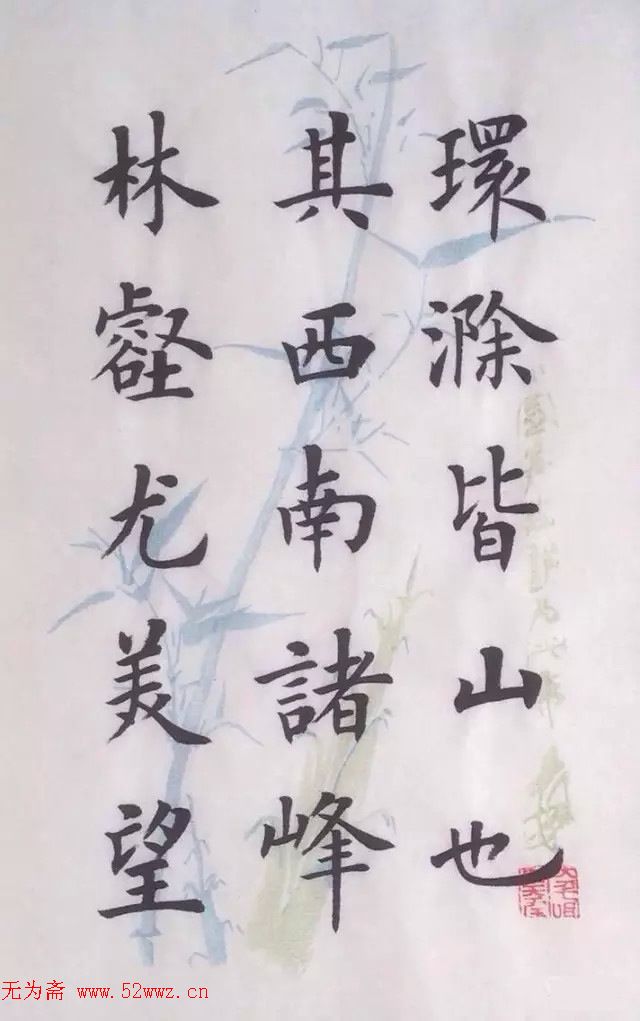 環滁皆山也
其西南諸峰
林壑尤美望
无为斋 www.52wwz.cn